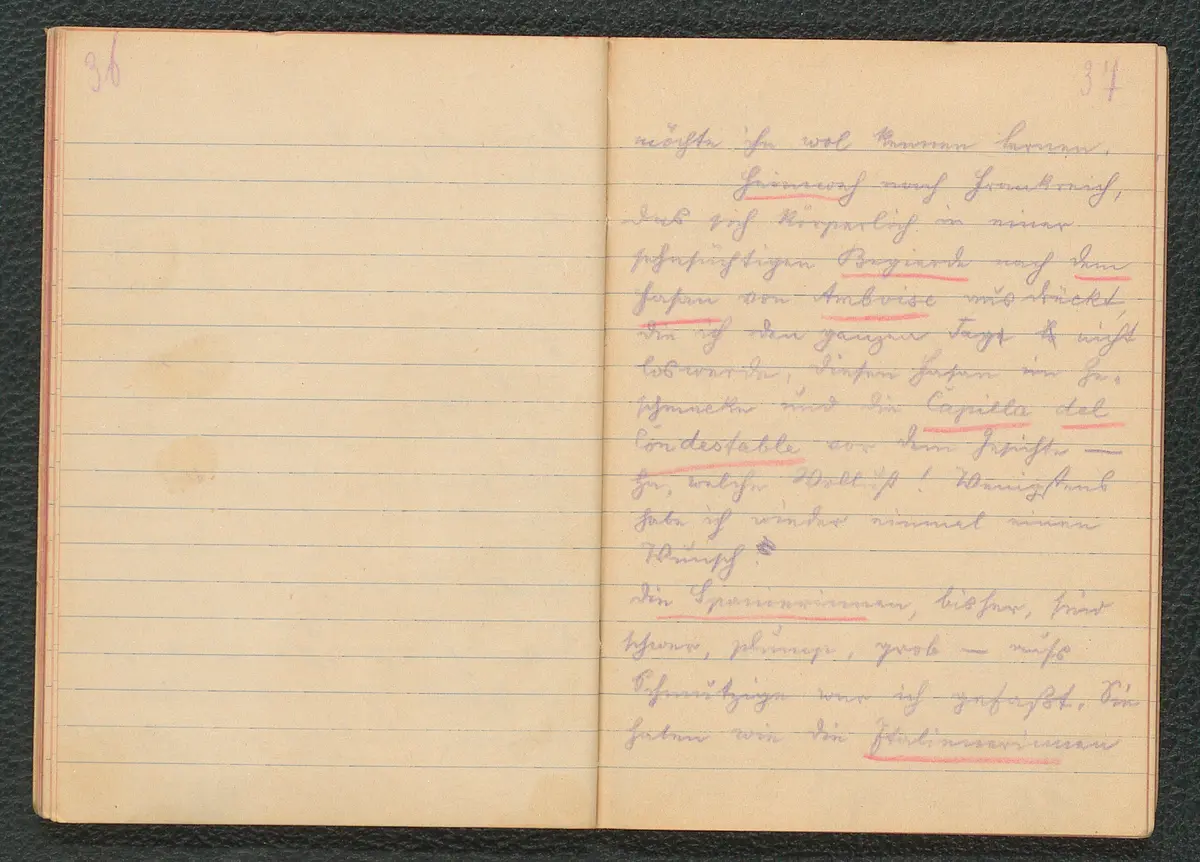 36
37
möchte ihn wol kennen lernen.
Heimweh nach Frankreich,
das sich körperlich in einer
sehnsüchtigen Begierde nach dem
Fasan von Amboise ausdrückt,
die ich den ganzen Tag nicht
loswerde. Diesen Fasan im Ge-
schmacke und die Capilla del
Condestable vor dem Gesichte —
Ha, welche Wollust! Wenigstens
habe ich wieder einmal einen
Wunsch!
Die Spanierinnen, bisher, sind
schwer, plump, grob — aufs
Schmutzige war ich gefaßt. Sie
haben wie die Italienerinnen